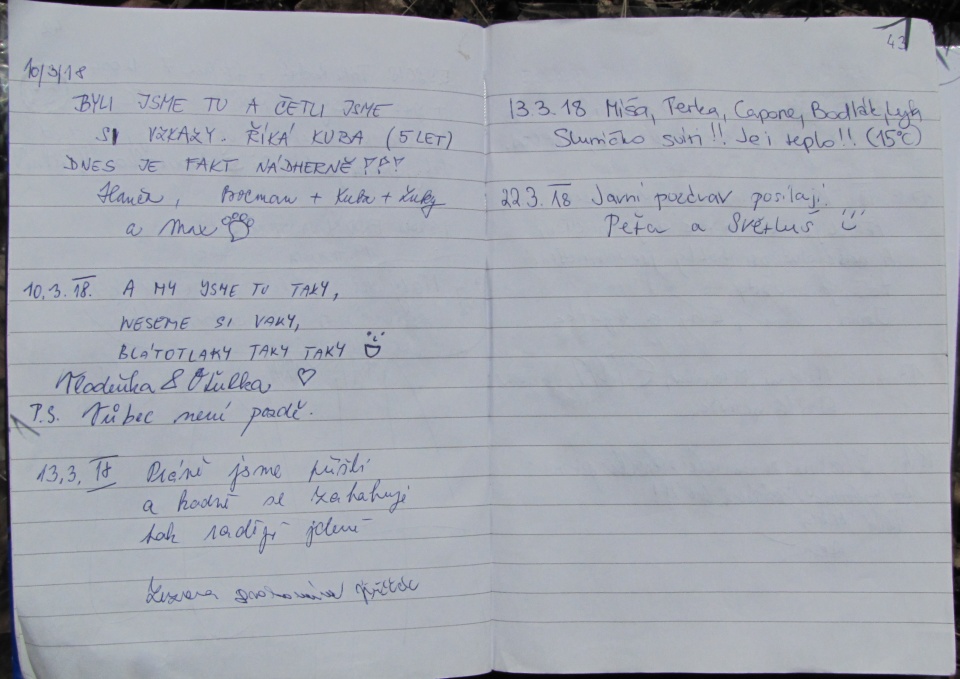 10/3/18
BYLI JSME TU A ČETLI JSME
SI VZKAZY. ŘÍKÁ KUBA (5 LET)
DNES JE FAKT NÁDHERNĚ !!!
Hanča, Bocman + Kuba + Žuky
a Max
10.3.18. A MY JSME TU TAKY,
NESEME SI VAKY,
BLÁTOTLAKY TAKY TAKY
&
P.S. Vůbec není pozdě.
13.3.18 jsme přišli
a hodně se
tak raději jdeme
43
13.3.18 Míša, Terka, Capone, Bodlák,
Sluníčko svítí!! Je i teplo!! (15°C)
22.3.18 Jarní pozdrav posílají
Péťa a Světluš